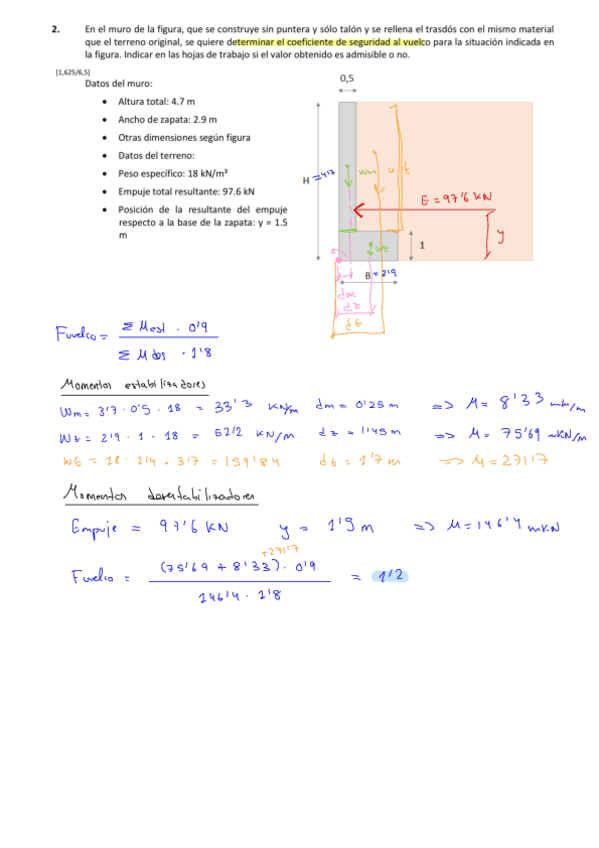 2. En el muro de la figura, que se construye sin puntera y sólo talón y se rellena el trasdós con el mismo material
que el terreno original, se quiere determinar el coeficiente de seguridad al vuelco para la situación indicada en
la figura. Indicar en las hojas de trabajo si el valor obtenido es admisible o no.
[1,625/6,5]
Datos del muro:
• Altura total: 4.7 m
• Ancho de zapata: 2.9 m
• Otras dimensiones según figura
• Datos del terreno:
• Peso específico: 18 kN/m³
• Empuje total resultante: 97.6 kN
• Posición de la resultante del empuje
respecto a la base de la zapata: y = 1.5
m
0,5
H = 4'7
Wm
Wt
E = 97'6 kN
y
1
B = 2'9
dm
dz
dt
Fvuelco = Σ Mest · 0'9
Σ Mdes · 1'8
Momentos estabilizadores
Wm = 3'7 · 0'5 · 18 = 33'3 KN/m dm = 0'25 m => M = 8'33 mkn/m
Wz = 2'9 · 1 · 18 = 52'2 KN/m dz = 1'45 m => M = 75'69 mKN/m
WG = 18 · 2'4 · 3'7 = 159'84 dt = 1'7 m => M = 271'7
Momentos desestabilizadores
Empuje = 97'6 KN y = 1'5 m => M = 146'4 mKN
+271'7
Fvuelco = (75'69 + 8'33) · 0'9 = 1'2
146'4 · 1'8